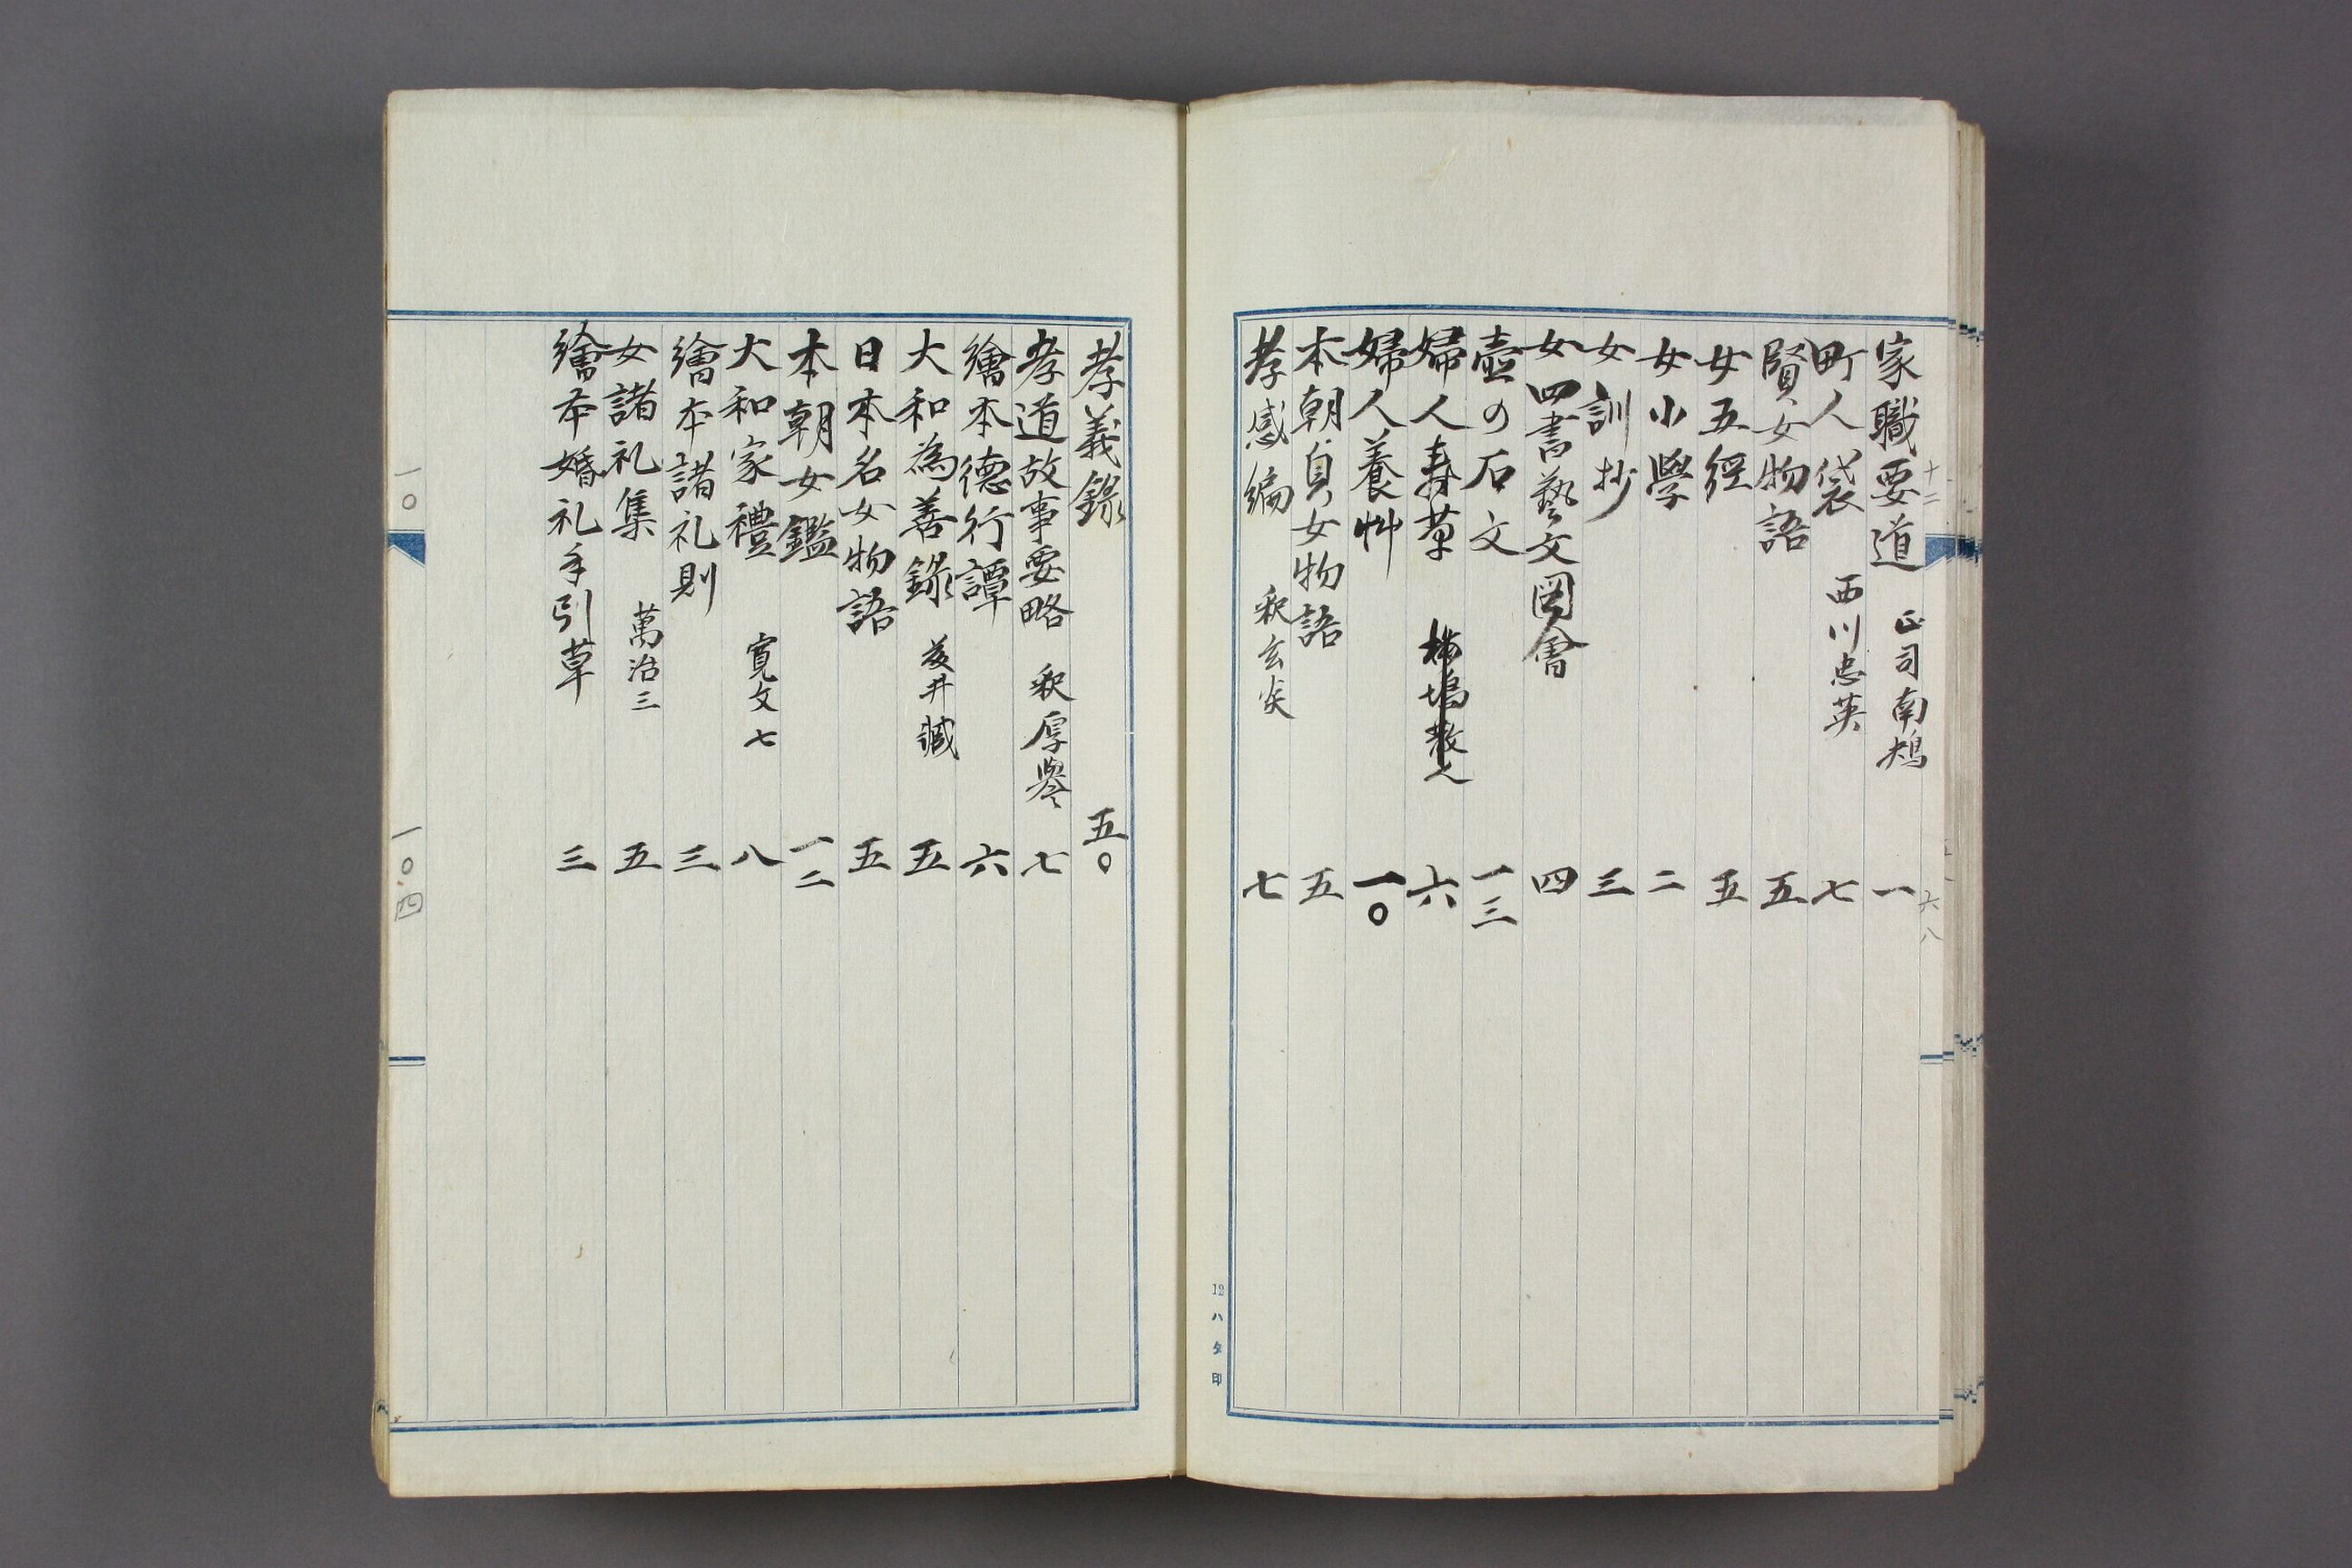 十二
六八
家職要道 正司南鴂 一
町人袋 西川忠英 七
賢女物語 五
女五經 五
女小學 二
女訓抄 三
女四書藝文図會 四
壺の石文 一三
婦人壽草 六
婦人養艸 一〇
本朝貞女物語 五
孝感編 釈玄光 七
12 ハタ印
孝義録 五〇
孝道故事要略 釈厚譽 七
繪本徳行譚 六
大和為善録 藤井臧 五
日本名女物語 五
本朝女鑑 一二
大和家禮 寛文七 八
繪本諸礼則 三
女諸礼集 萬治三 五
繪本婚礼手引草 三
一〇
一〇四